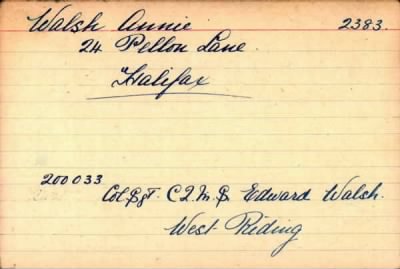 Walsh Annie 2383.
24 Pellon Lane.
"Halifax
200033
Col Sgt. C Q. M. S. Edward Walsh.
West Riding